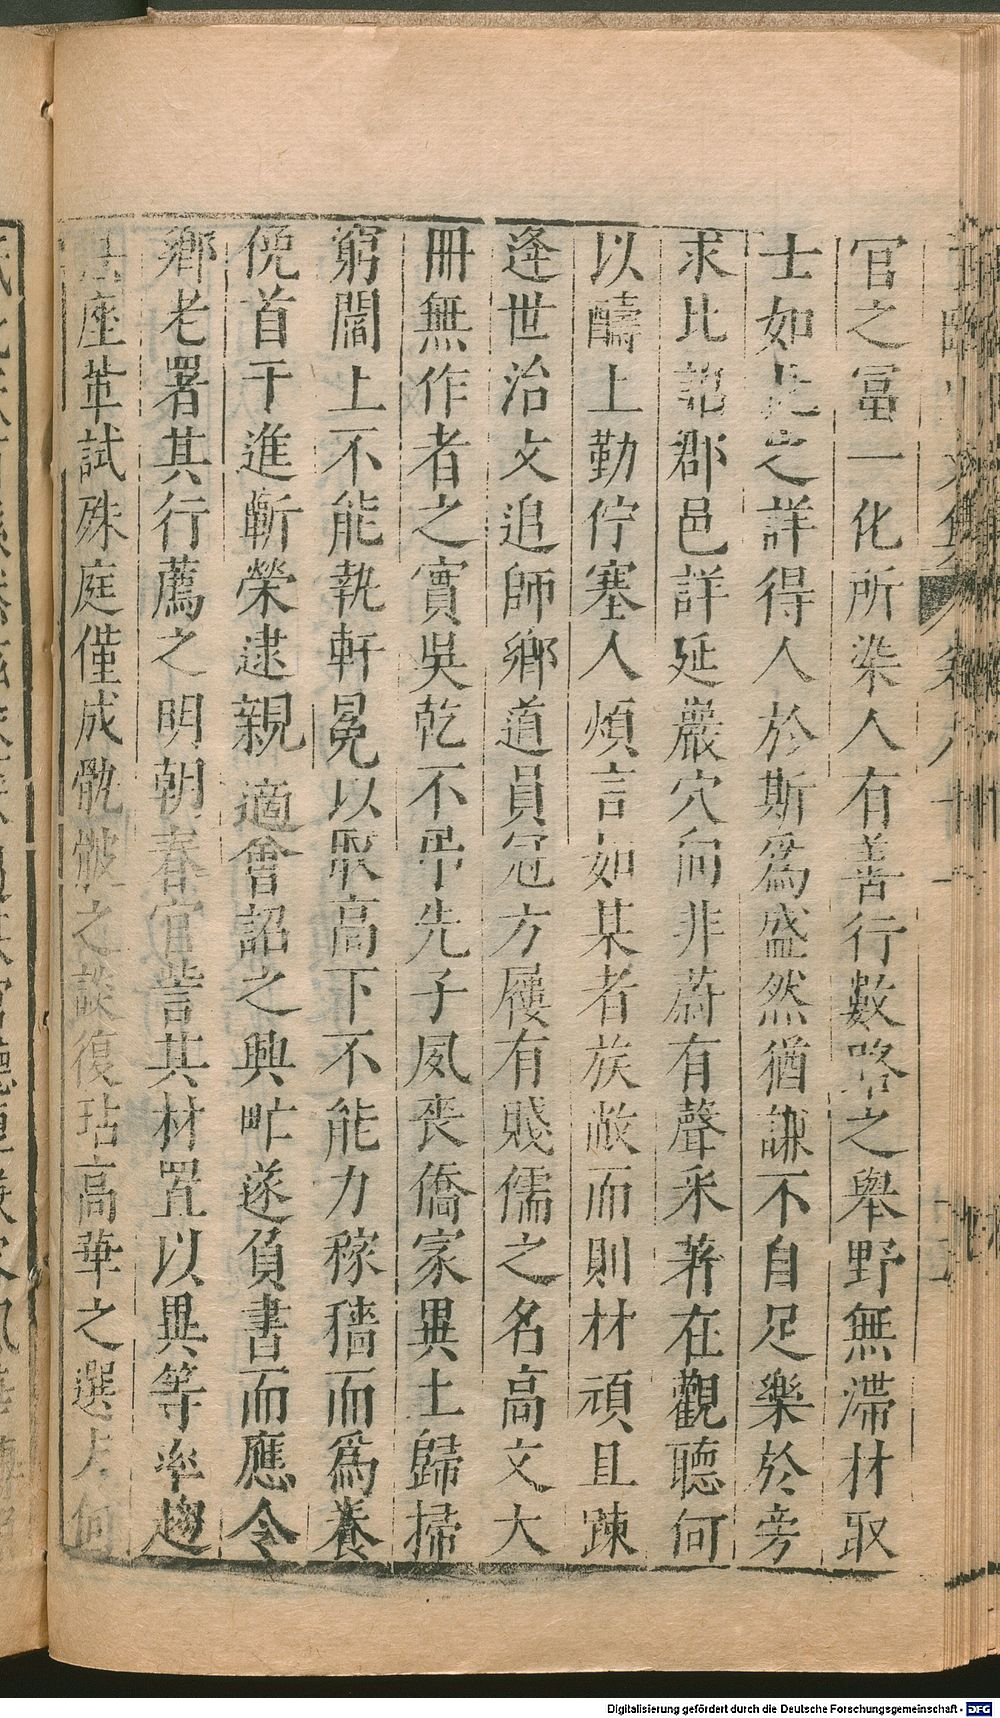 官之冨一化所染人有善行數路之舉野無滯材取
士如此之詳得人於斯爲盛然猶謙不自足樂於旁
求比詔郡邑詳延巖穴向非蔚有聲釆著在觀聽何
以疇上勤佇塞人煩言如某者族敝而則材頑且踈
逢世治文追師鄉道員冠方屨有賤儒之名高文大
冊無作者之實吳乾不弔先子夙喪僑家異土歸掃
窮閻上不能執軒冕以取高下不能力稼穡而爲養
俛首干進蘄榮逮親適會詔之興甿遂負書而應令
鄉老署其行薦之明朝春官訾其材置以異等率趨
座輩試殊庭僅成骫骳之談復玷高華之選夫何
Digitalisierung gefördert durch die Deutsche Forschungsgemeinschaft - DFG